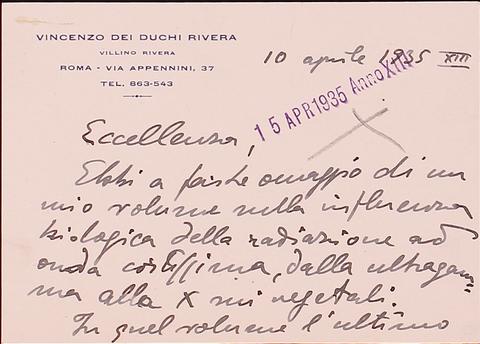 VINCENZO DEI DUCHI RIVERA
VILLINO RIVERA
ROMA - VIA APPENNINI, 37
TEL. 863-543
10 aprile 1935 XIII
15 APR 1935 Anno XIII
Eccellenza,
Ebbi a farle omaggio di un
mio volume sulla influenza
biologica della radiazione ad
onda cortissima, dalla ultragam=
ma alla X sui vegetali.
In quel volume l'ultimo